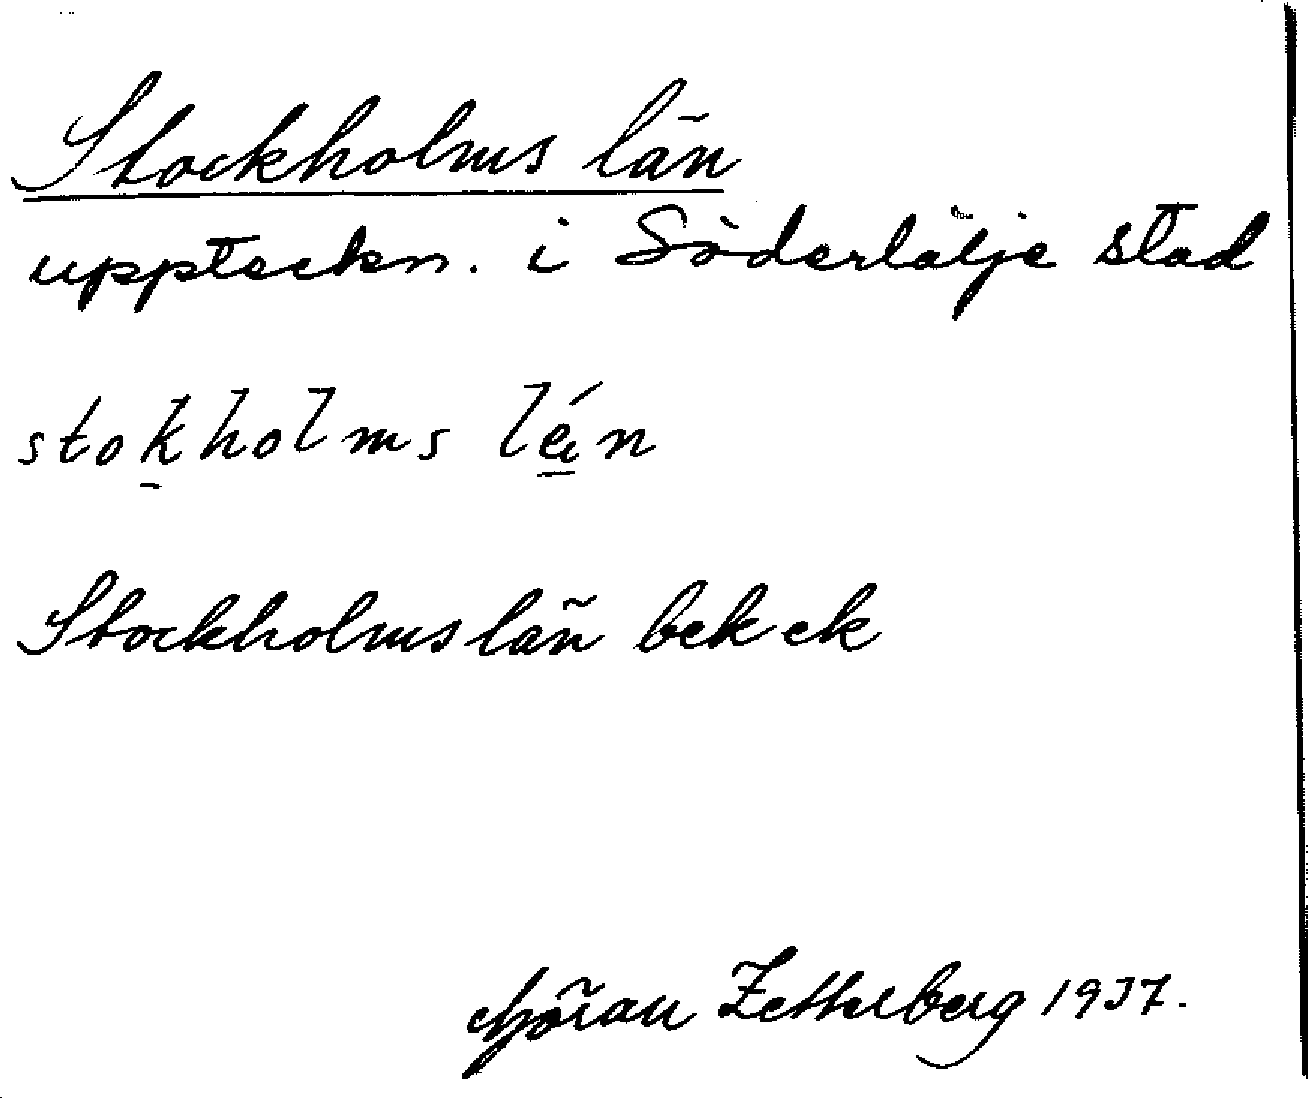 Stockholms län
uppteckn. i Södertälje stad
stokholms lén
Stockholms län bek ek
Göran Zetterberg 1937.